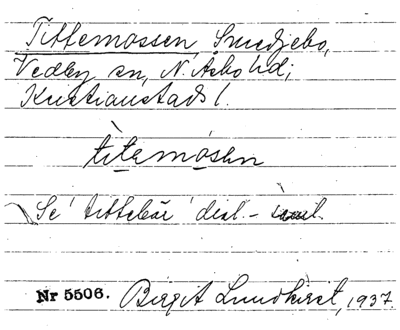 Tittemossen, Smedjebo,
Vedby sn, N. Åsbo hd;
Kristianstads l.
titemosen
Se 'tittebär' dial. -
Nr 5506. Birgit Lundkvist, 1937